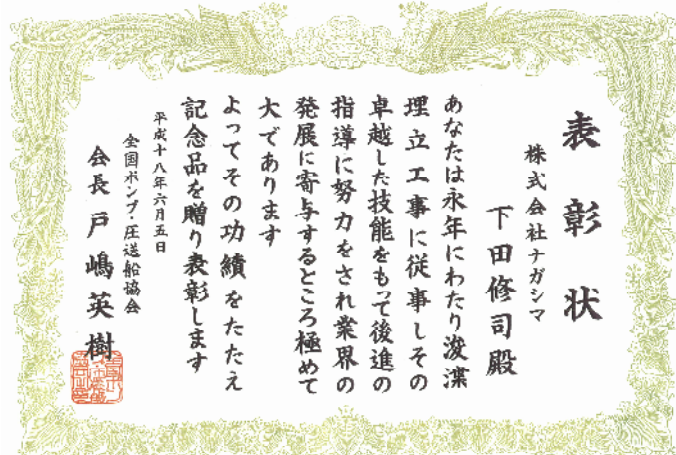 表彰状
株式会社ナガシマ
下田修司殿
あなたは永年にわたり浚渫
埋立工事に従事しその
卓越した技能をもって後進の
指導に努力をされ業界の
発展に寄与するところ極めて
大であります
よってその功績をたたえ
記念品を贈り表彰します
平成十八年六月五日
全国ポンプ・圧送船協会
会長戸嶋英樹